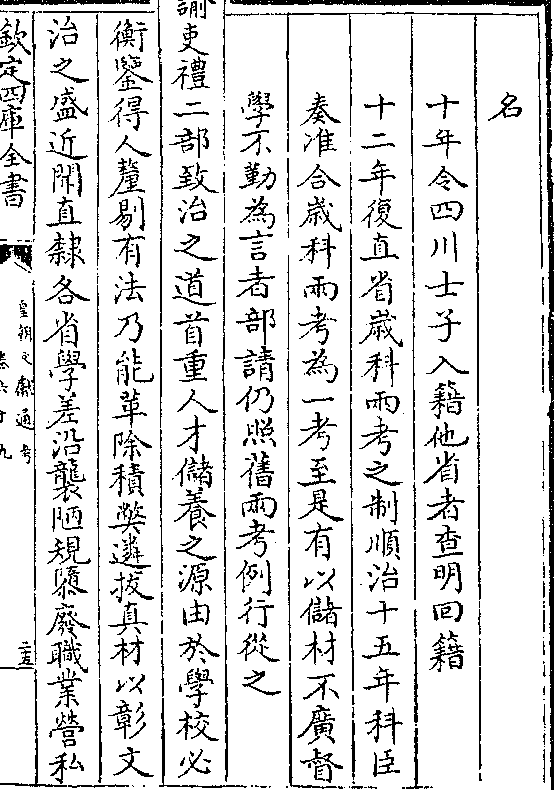 名
十年令四川士子入籍他省者查明回籍
十二年復直省歲科兩考之制順治十五年科臣
奏准合歲科兩考為一考至是有以儲材不廣督
學不勤為言者部請仍照舊兩考例行從之
諭吏禮二部致治之道首重人才儲養之源由於學校必
衡鑒得人釐剔有法乃能革除積弊遴拔真材以彰文
治之盛近聞直隸各省學差沿襲陋規隳廢職業營私
欽定四庫全書
皇朝文獻通考
卷六十九
二十五